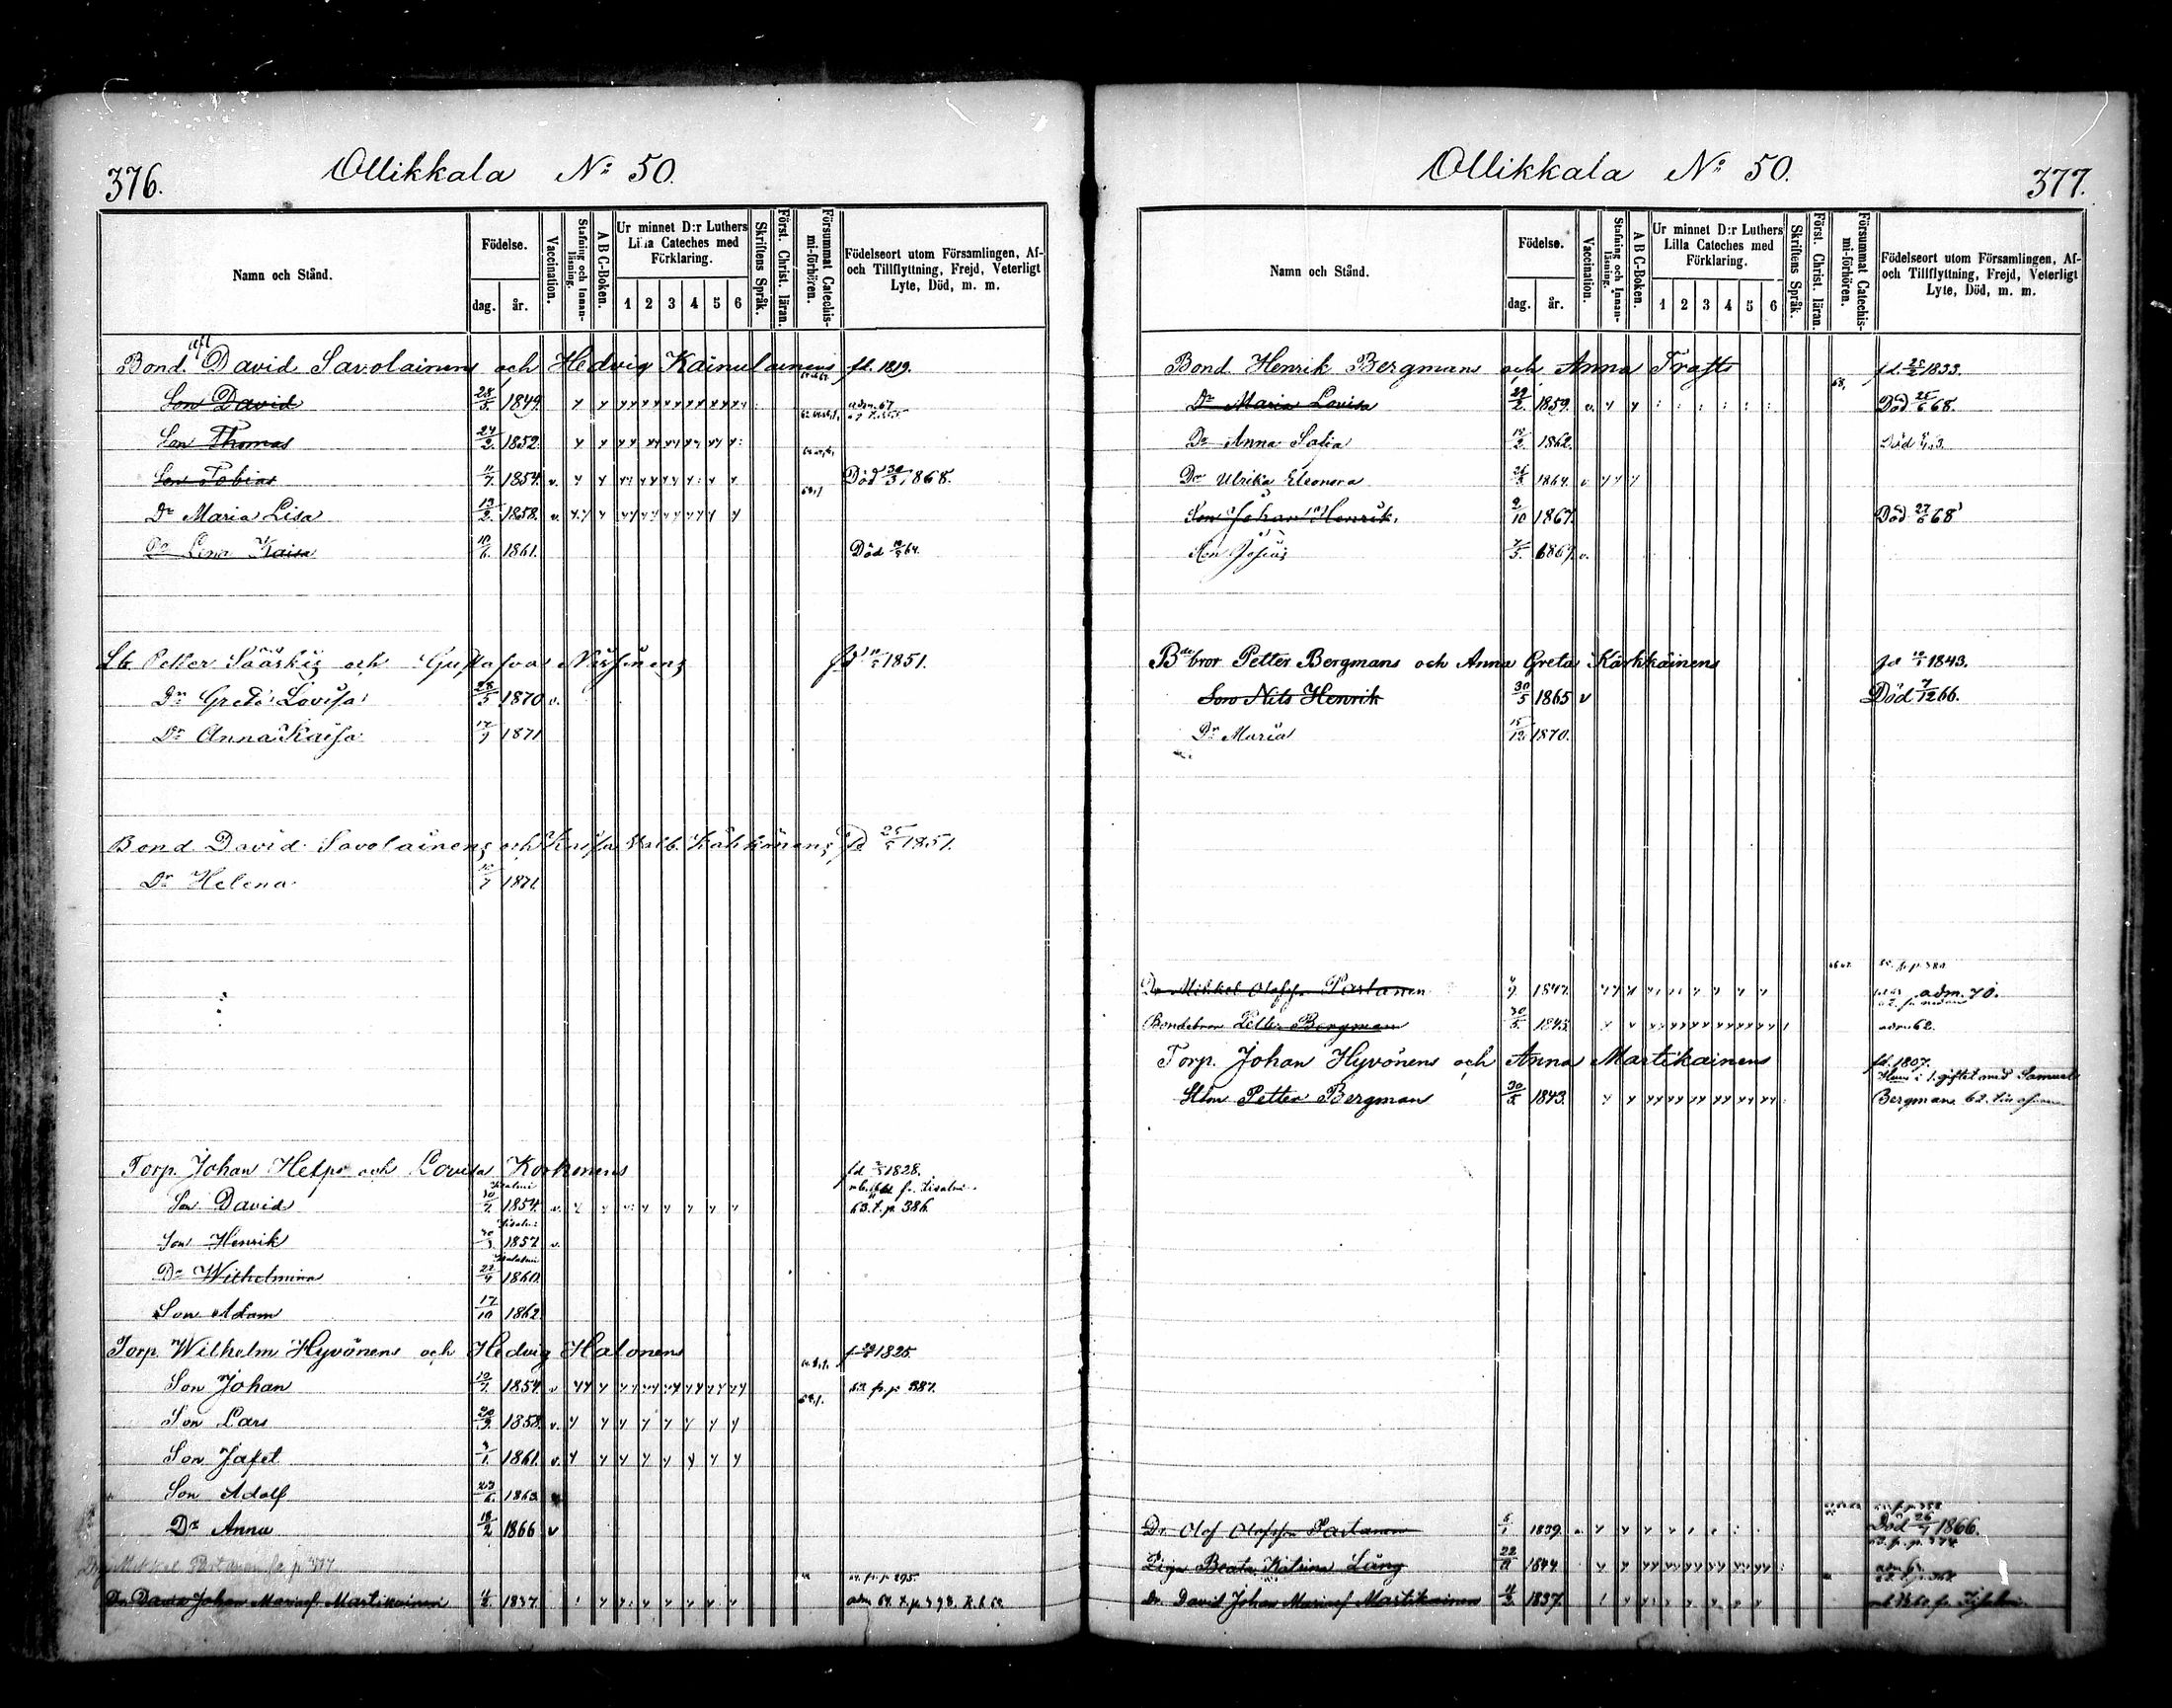 376.
Ollikkala No 50.
Namn och Stånd.
Födelse.
dag. år.
Vaccination.
Stafning och Innanläsning.
A B C-Boken.
Ur minnet D:r Luthers Lilla Cateches med Förklaring.
1 2 3 4 5 6
Skriftens Språk.
Först. Christ. läran.
Försummat Catechismi-förhören.
Födelseort utom Församlingen, Af- och Tillflyttning, Frejd, Veterligt Lyte, Död, m. m.
Bond. David Savolainens och Hedvig Kainulainens fd. 1819.
Son David 28/5 1849. adm. 67
Son Thomas 24/2 1852.
Son Tobias 11/7 1854. v. Död 30/3 1868.
Dr Maria Lisa 13/2 1858. v.
Dr Lena Kaisa 10/6 1861. Död 64.
Petter Sääskis och Gustafva 1851.
Dr Greta Lovisa 1870 v.
Dr Anna Kaisa 17/9 1871
Bond David Savolainens och Kaisa 25 1851.
Dr Helena 1871
Torp. Johan och Lovisa Korhonens fd 1828.
Son David 1854. v. 63. f. p. 386.
Son Henrik 1857 v.
Dr Wilhelmina 22/9 1860.
Son Adam 17/10 1862
Torp. Wilhelm Hyvönens och Hedvig Halonens 1825.
Son Johan 12/7 1854 v 62 fr. p 387.
Son Lars 20/9 1858. v.
Son Jafet 1861. v.
Son Adolf 23/6 1863
Dr Anna 18/2 1866 v
Mikkel p. 377
Dr David Johan Martikainen 4/2 1837.
377.
Ollikkala No 50.
Namn och Stånd.
Födelse.
dag. år.
Vaccination.
Stafning och Innanläsning.
A B C-Boken.
Ur minnet D:r Luthers Lilla Cateches med Förklaring.
1 2 3 4 5 6
Skriftens Språk.
Först. Christ. läran.
Försummat Catechismi-förhören.
Födelseort utom Församlingen, Af- och Tillflyttning, Frejd, Veterligt Lyte, Död, m. m.
Bond Henrik Bergmans och Anna Trafts fd. 25/2 1833.
Dr Maria Lovisa 29/2 1859. v. Död 25/6 68.
Dr Anna Sofia 1862. Död
Dr Ulrika Eleonora 1864. v
Son Johan Henrik. 9/10 1867. Död 27/5 68
Son Josua 7/5 1869 v.
Bror Petter Bergmans och Anna Greta Kärkkäinens fd 1843.
Son Nils Henrik 30/5 1865 v Död 7/12 66.
Dr Maria 15/12 1870.
Dr Mikkel Olofson Partanen 1847. adm. 70.
Bondebror Petter Bergman 30/5 1843. adm 62.
Torp. Johan Hyvönens och Anna Martikainens fd. 1807.
Hon i 1. giftet med Samuel
Petter Bergman 30/5 1843. Bergman
Dr Olof Olofson Partanen 1839. Död 26 1866.
Piga Beata Katrina Lång 22 1844.
Dr David Johan Martikainen 4/2 1837.